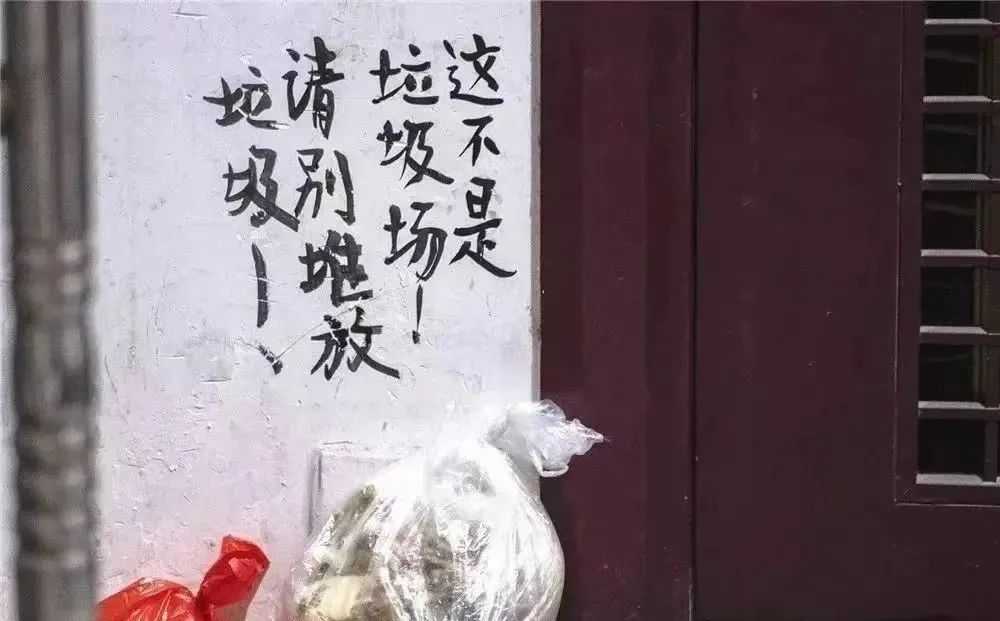 这不是
垃圾场！
请别堆放
垃圾！